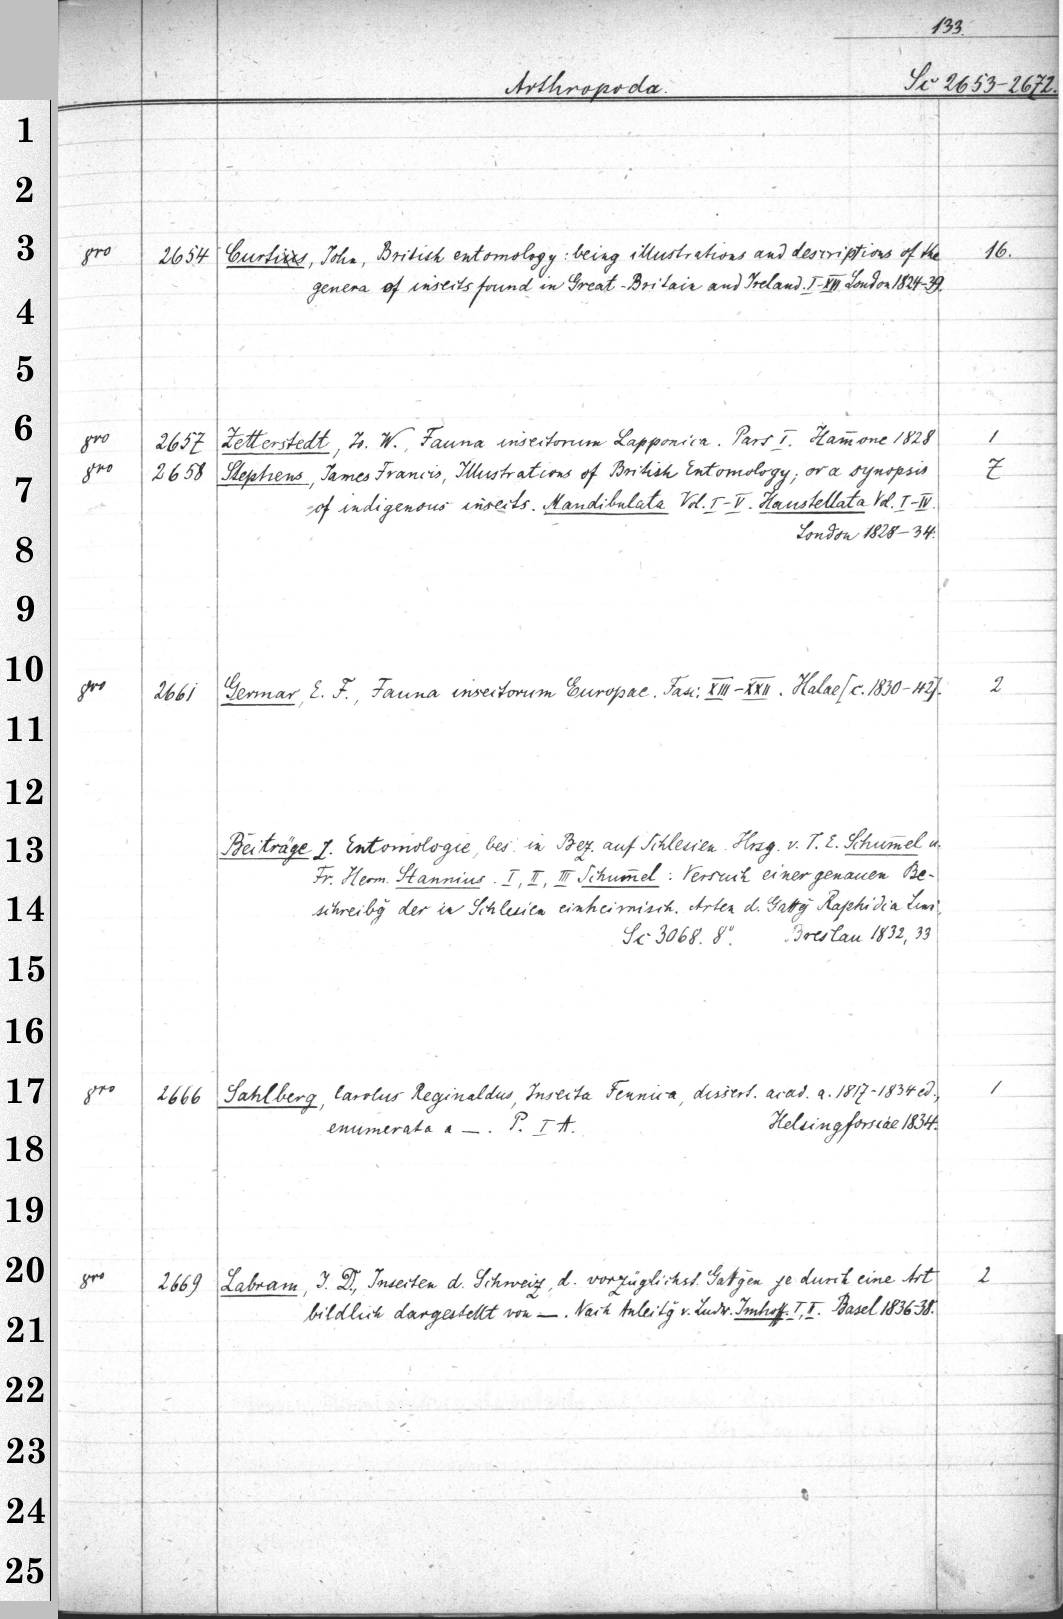 133.
Arthropoda. Sc 2653-2672.
1
2
3 8vo 2654 Curtius, John, British entomology: being illustrations and descriptions of the 16.
genera of insects found in Great-Britain and Ireland. I-XVI London 1824-39.
4
5
6 8vo 2657 Zetterstedt, Jo. W., Fauna insectorum Lapponica. Pars I. Ham̄one 1828 1
7 8vo 2658 Stephens, James Francis, Illustrations of British Entomology; or a synopsis 7
of indigenous insects. Mandibulata Vol. I-V. Haustellata Vol. I-IV.
8 London 1828-34.
9
10 8vo 2661 Germar, E. F., Fauna insectorum Europae. Fasc. XIII-XXII. Halae [c. 1830-42]. 2
11
12
13 Beiträge z. Entomologie, bes. in Bez. auf Schlesien. Hrsg. v. T. E. Schum̄el u.
Fr. Herm. Stannius. I, II, III Schum̄el: Versuch einer genauen Be-
14 schreibg̃ der in Schlesien einheimisch. Arten d. Gattg̃ Raphidia Linn.
Sc 3068. 8°. Breslau 1832, 33
15
16
17 8vo 2666 Sahlberg, Carolus Reginaldus, Insecta Fennica, dissert. acad. a. 1817-1834 ed., 1
18 enumerata a —. P. I A. Helsingforsiae 1834.
19
20 8vo 2669 Labram, J. D., Insecten d. Schweiz, d. vorzüglichst. Gattgen je durch eine Art 2
21 bildlich dargestellt von —. Nach Anleitg̃ v. Ludw. Imhoff. I, II. Basel 1836-38.
22
23
24
25